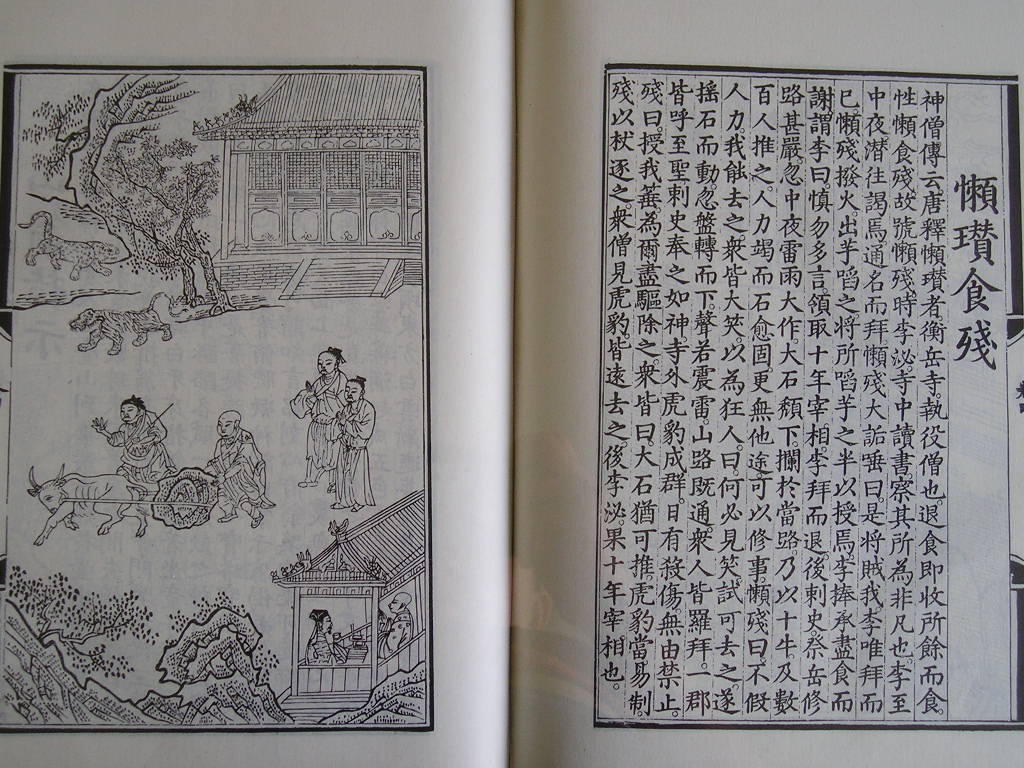 懶瓚食殘
神僧傳云唐釋懶瓚者衡岳寺。執役僧也退食即收所餘而食。
性懶食殘故號懶殘。時李泌寺中讀書察其所為非凡也。李至
中夜潛往謁焉。通名而拜懶殘大詬唾曰是將賊我李唯拜而
已懶殘撥火。出芋啗之將所啗芋之半以授焉。李捧承盡食而
謝謂李曰慎勿多言領取十年宰相。李拜而退後刺史祭岳修
路甚嚴。忽中夜雷雨大作。大石頹下。攔於當路。乃以十牛及數
百人推之。人力竭而石愈固。更無他途可以修事。懶殘曰不假
人力。我能去之衆皆大笑。以為狂人曰。何必見笑試可去之。遂
搖石而動忽盤轉而下。聲若震雷。山路既通衆人皆羅拜。一郡
皆呼至聖刺史奉之如神寺外虎豹成群。日有殺傷。無由禁止。
殘曰。授我箠為爾盡驅除之衆皆曰。大石猶可推。虎豹當易制。
殘以杖逐之衆僧見虎豹皆遠去之。後李泌。果十年宰相也。